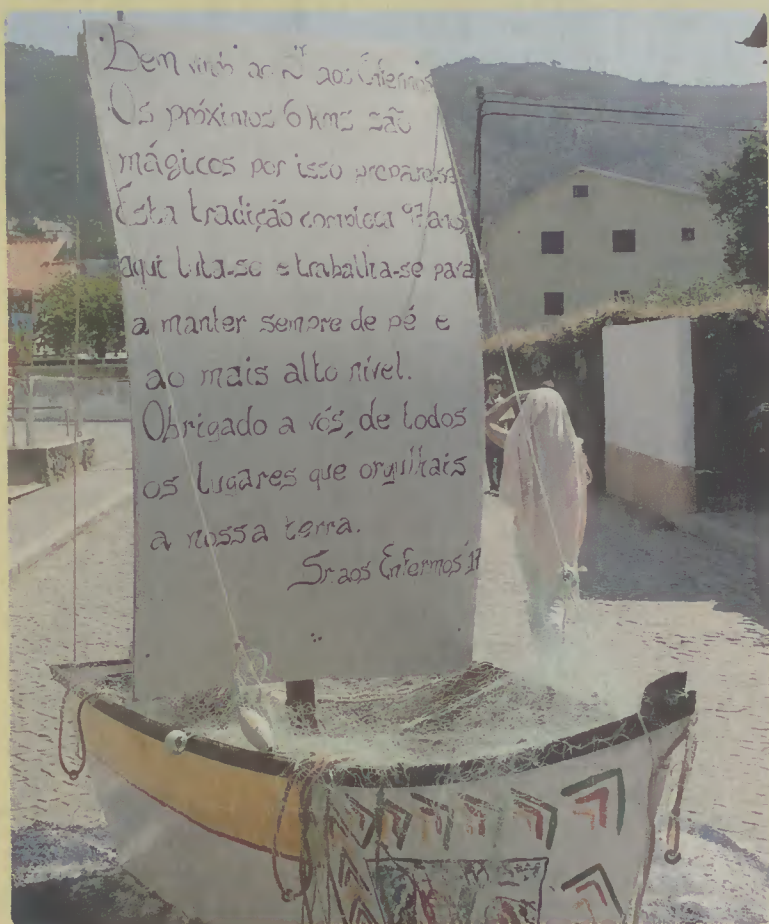 Bem ao Sr aos Enfermos
Os próximos 6 kms são
mágicos por isso prepare-se
Esta tradição completa 97 anos
aqui luta-se e trabalha-se para
a manter sempre de pé e
ao mais alto nível.
Obrigado a vós, de todos
os lugares que orgulhais
a nossa terra.
Sr aos Enfermos'17